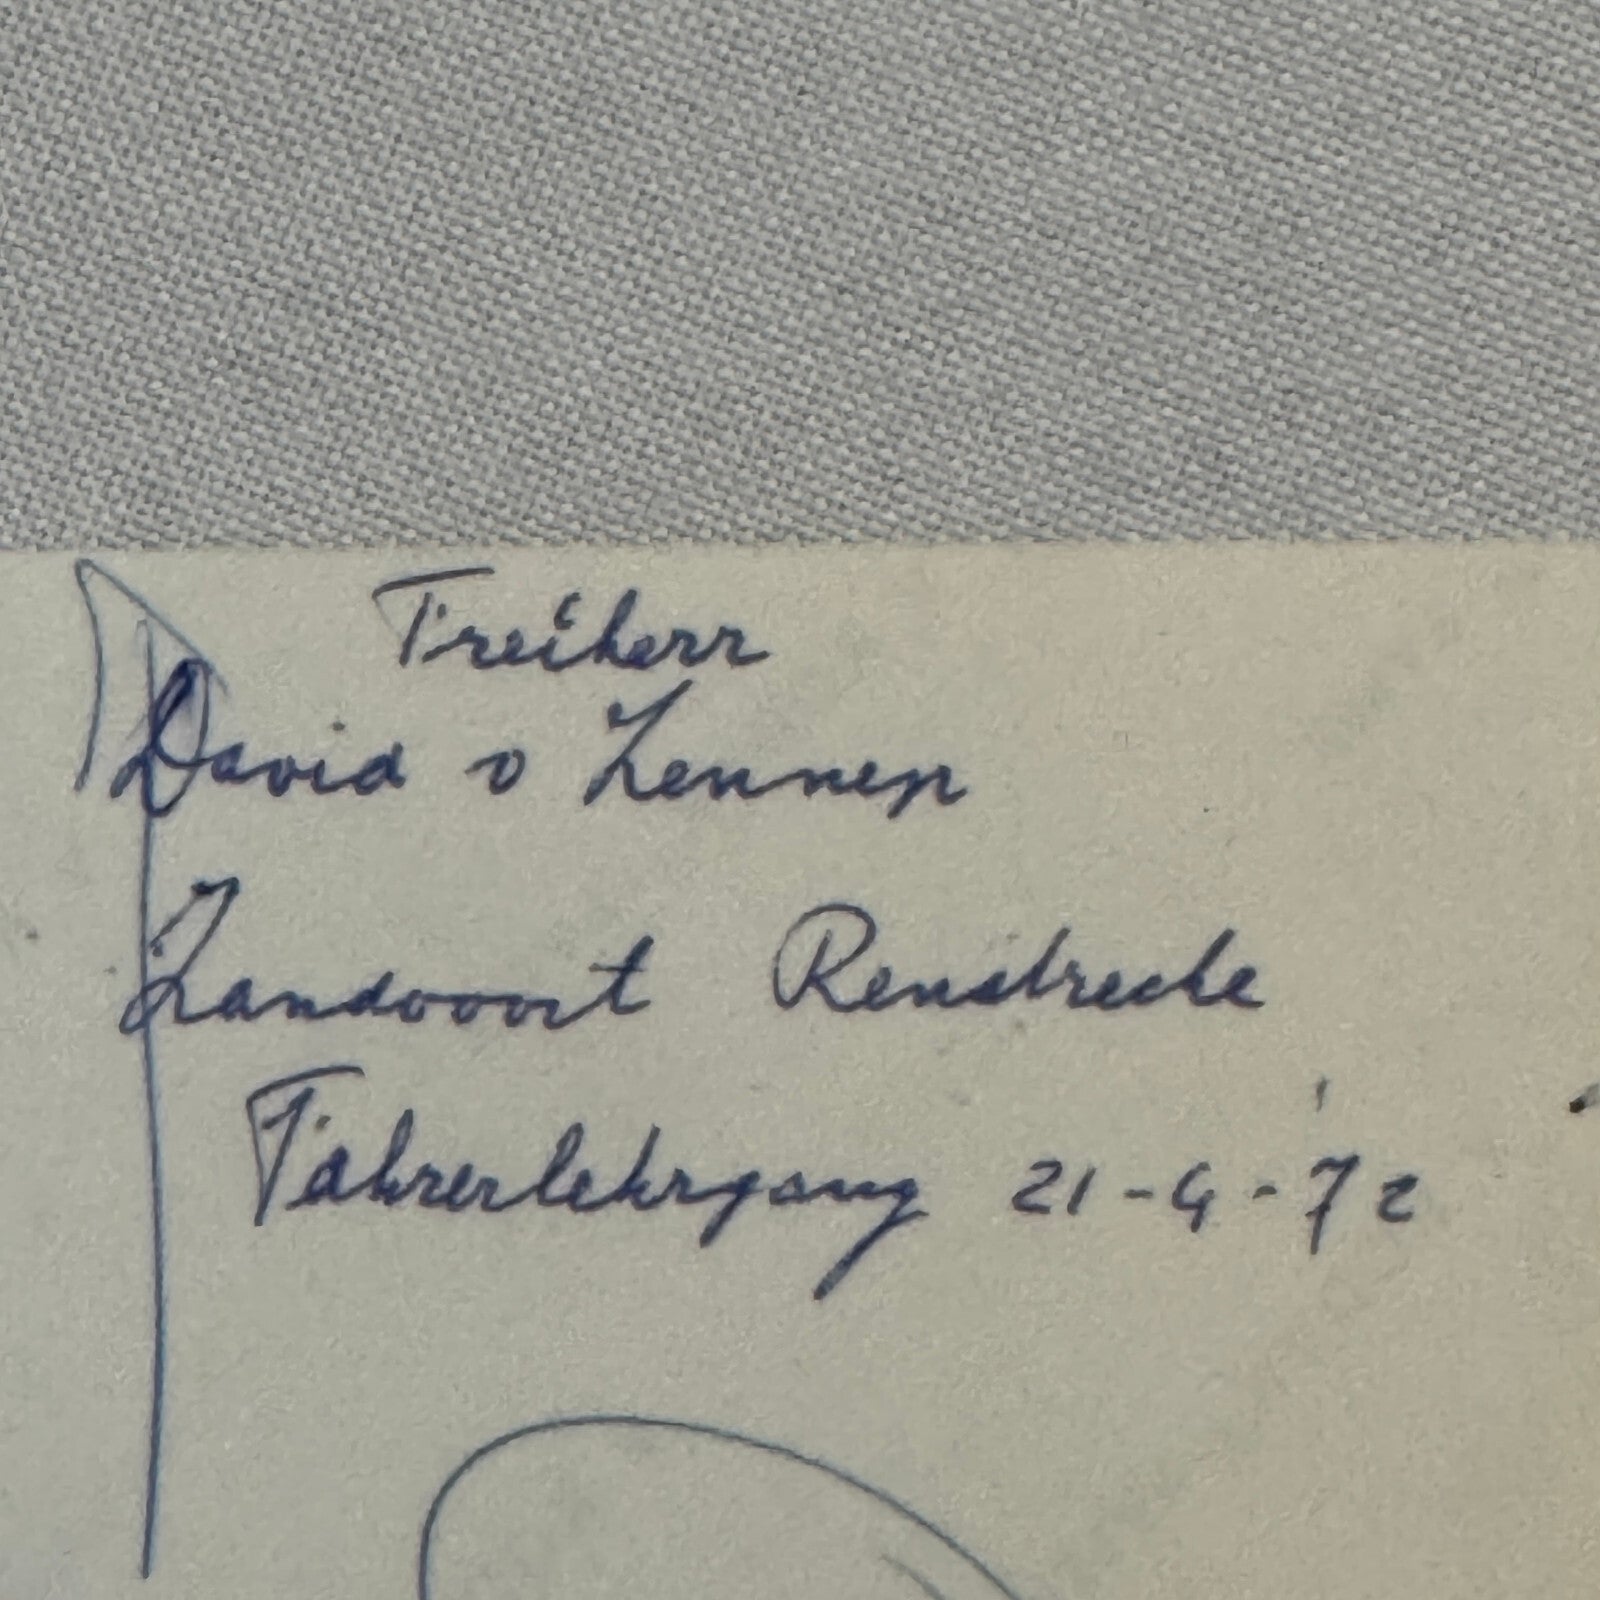 Freiherr
David v Lennep
Zandvoort Renstrecke
Fahrerlehrgang 21-4-72